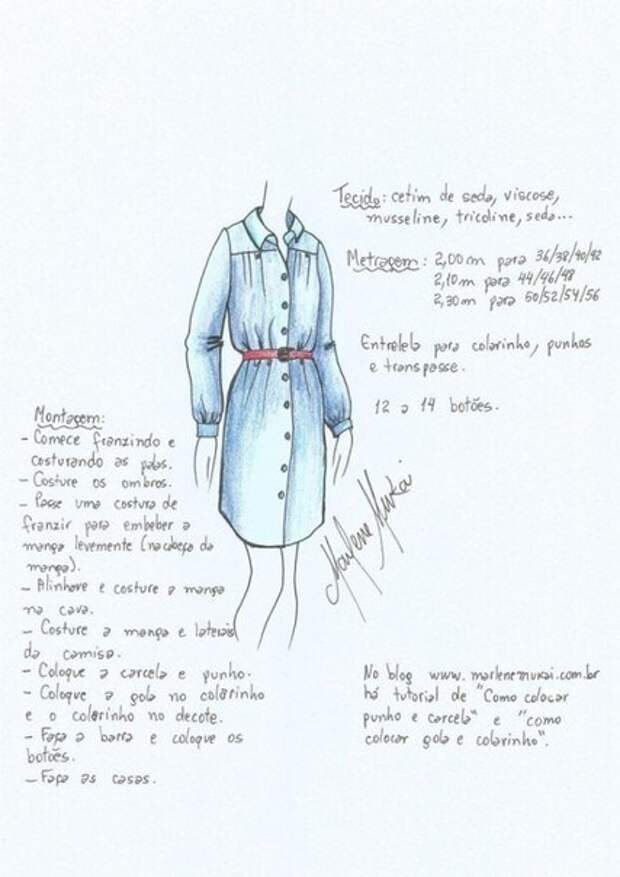 Tecido: cetim de seda, viscose,
musseline, tricoline, seda...
Metragem: 2,00m para 36/38/40/42
2,10m para 44/46/48
2,30m para 50/52/54/56
Entretela para colarinho, punhos
e transpasse.
12 a 14 botões.
Montagem:
- Comece franzindo e
costurando as palas.
- Costure os ombros.
- Passe uma costura de
franzir para embeber a
manga levemente (na cabeça da
manga).
- Alinhave e costure a manga
na cava.
- Costure a manga e laterais
da camisa.
- Coloque a carcela e punho.
- Coloque a gola no colarinho
e o colarinho no decote.
- Faça a barra e coloque os
botões.
- Faça as casas.
Marlene Mukai
No blog www.marlenemukai.com.br
há tutorial de "Como colocar
punho e carcela" e "como
colocar gola e colarinho".